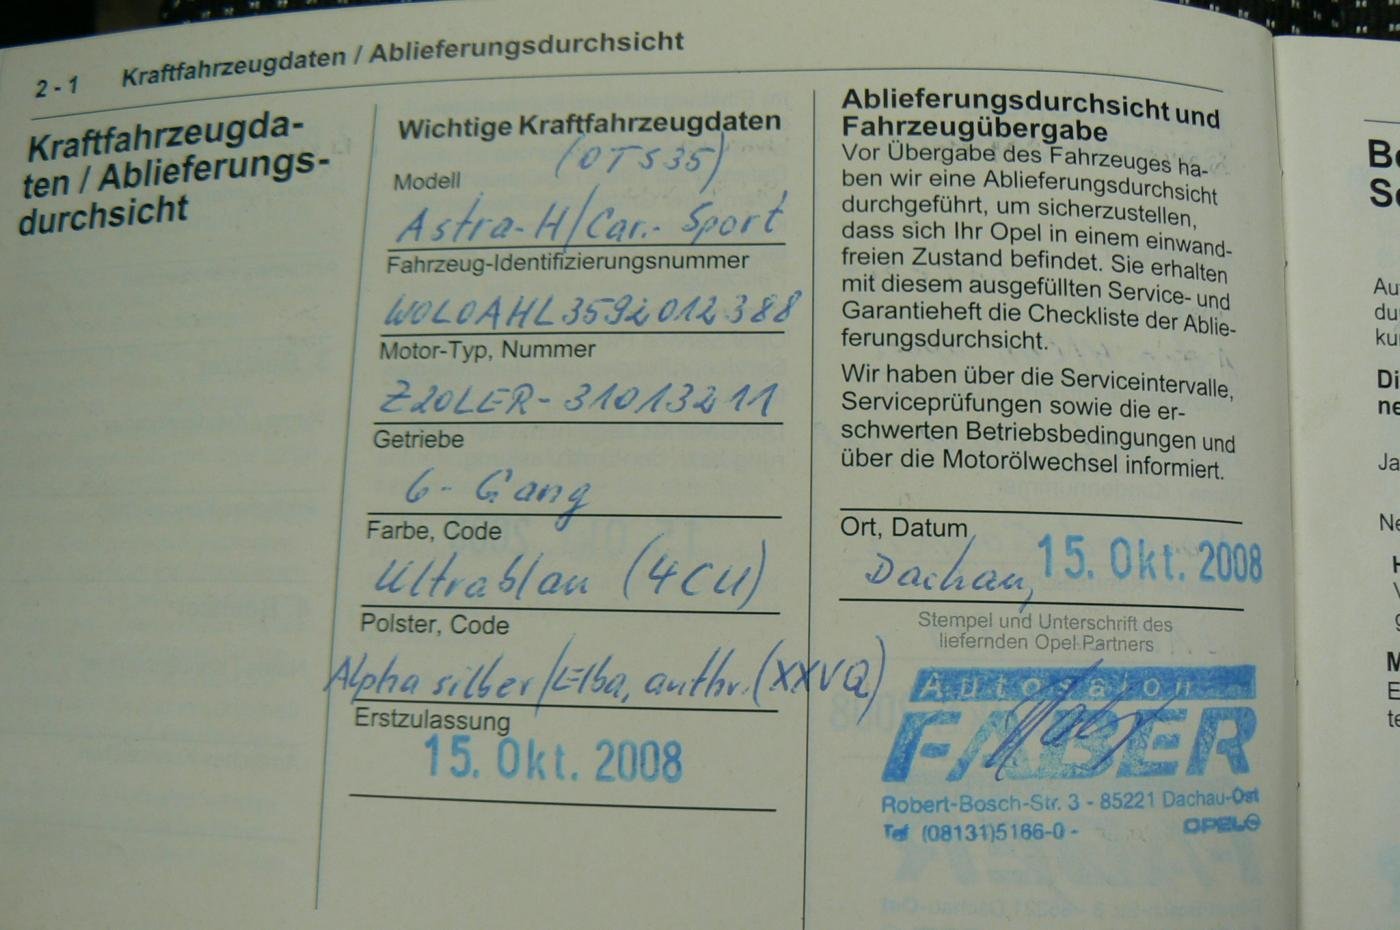 2 - 1 Kraftfahrzeugdaten / Ablieferungsdurchsicht
Kraftfahrzeugda-
ten / Ablieferungs-
durchsicht
Wichtige Kraftfahrzeugdaten
(OTS35)
Modell
Astra-H/Car.- Sport
Fahrzeug-Identifizierungsnummer
W0L0AHL3592012388
Motor-Typ, Nummer
Z20LER- 31013211
Getriebe
6- Gang
Farbe, Code
Ultrablau (4CU)
Polster, Code
Alpha silber/Elba, anthr. (XXVQ)
Erstzulassung
15. Okt. 2008
Ablieferungsdurchsicht und
Fahrzeugübergabe
Vor Übergabe des Fahrzeuges ha-
ben wir eine Ablieferungsdurchsicht
durchgeführt, um sicherzustellen,
dass sich Ihr Opel in einem einwand-
freien Zustand befindet. Sie erhalten
mit diesem ausgefüllten Service- und
Garantieheft die Checkliste der Ablie-
ferungsdurchsicht.
Wir haben über die Serviceintervalle,
Serviceprüfungen sowie die er-
schwerten Betriebsbedingungen und
über die Motorölwechsel informiert.
Ort, Datum
Dachau, 15. Okt. 2008
Stempel und Unterschrift des
liefernden Opel-Partners
Autosalon
FABER
Robert-Bosch-Str. 3 - 85221 Dachau-Ost
Tel (08131)5166-0 - OPEL